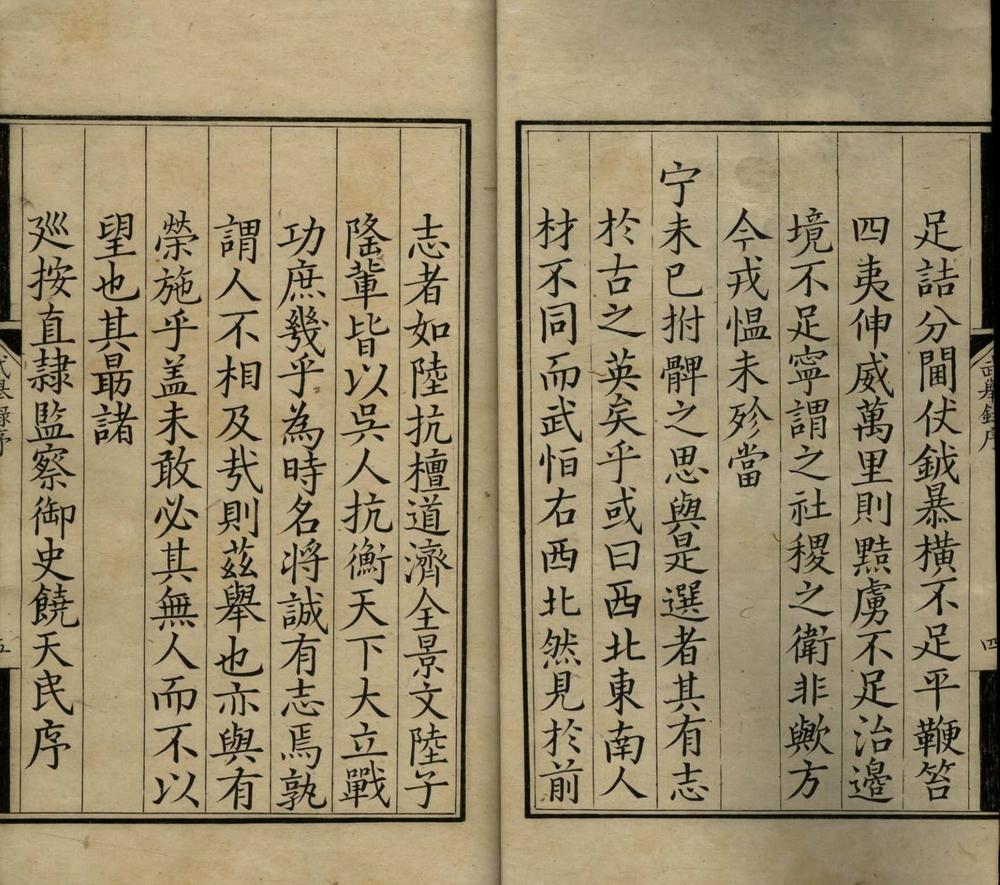 足詰分閫伏鉞暴橫不足平鞭笞
四夷伸威萬里則黠虜不足治邊
境不足寧謂之社稷之衛非歟方
今戎愠未殄當
宁未已拊髀之思與是選者其有志
於古之英矣乎或曰西北東南人
材不同而武怕右西北然見於前
武舉錄序
四
志者如陸抗檀道濟全景文陸子
隆輩皆以吳人抗衡天下大立戰
功庶幾乎為時名将誠有志焉孰
謂人不相及㢤則茲舉也亦與有
榮施乎盖未敢必其無人而不以
望也其最諸
廵按直隷監察御史饒天民序
武舉錄序
五